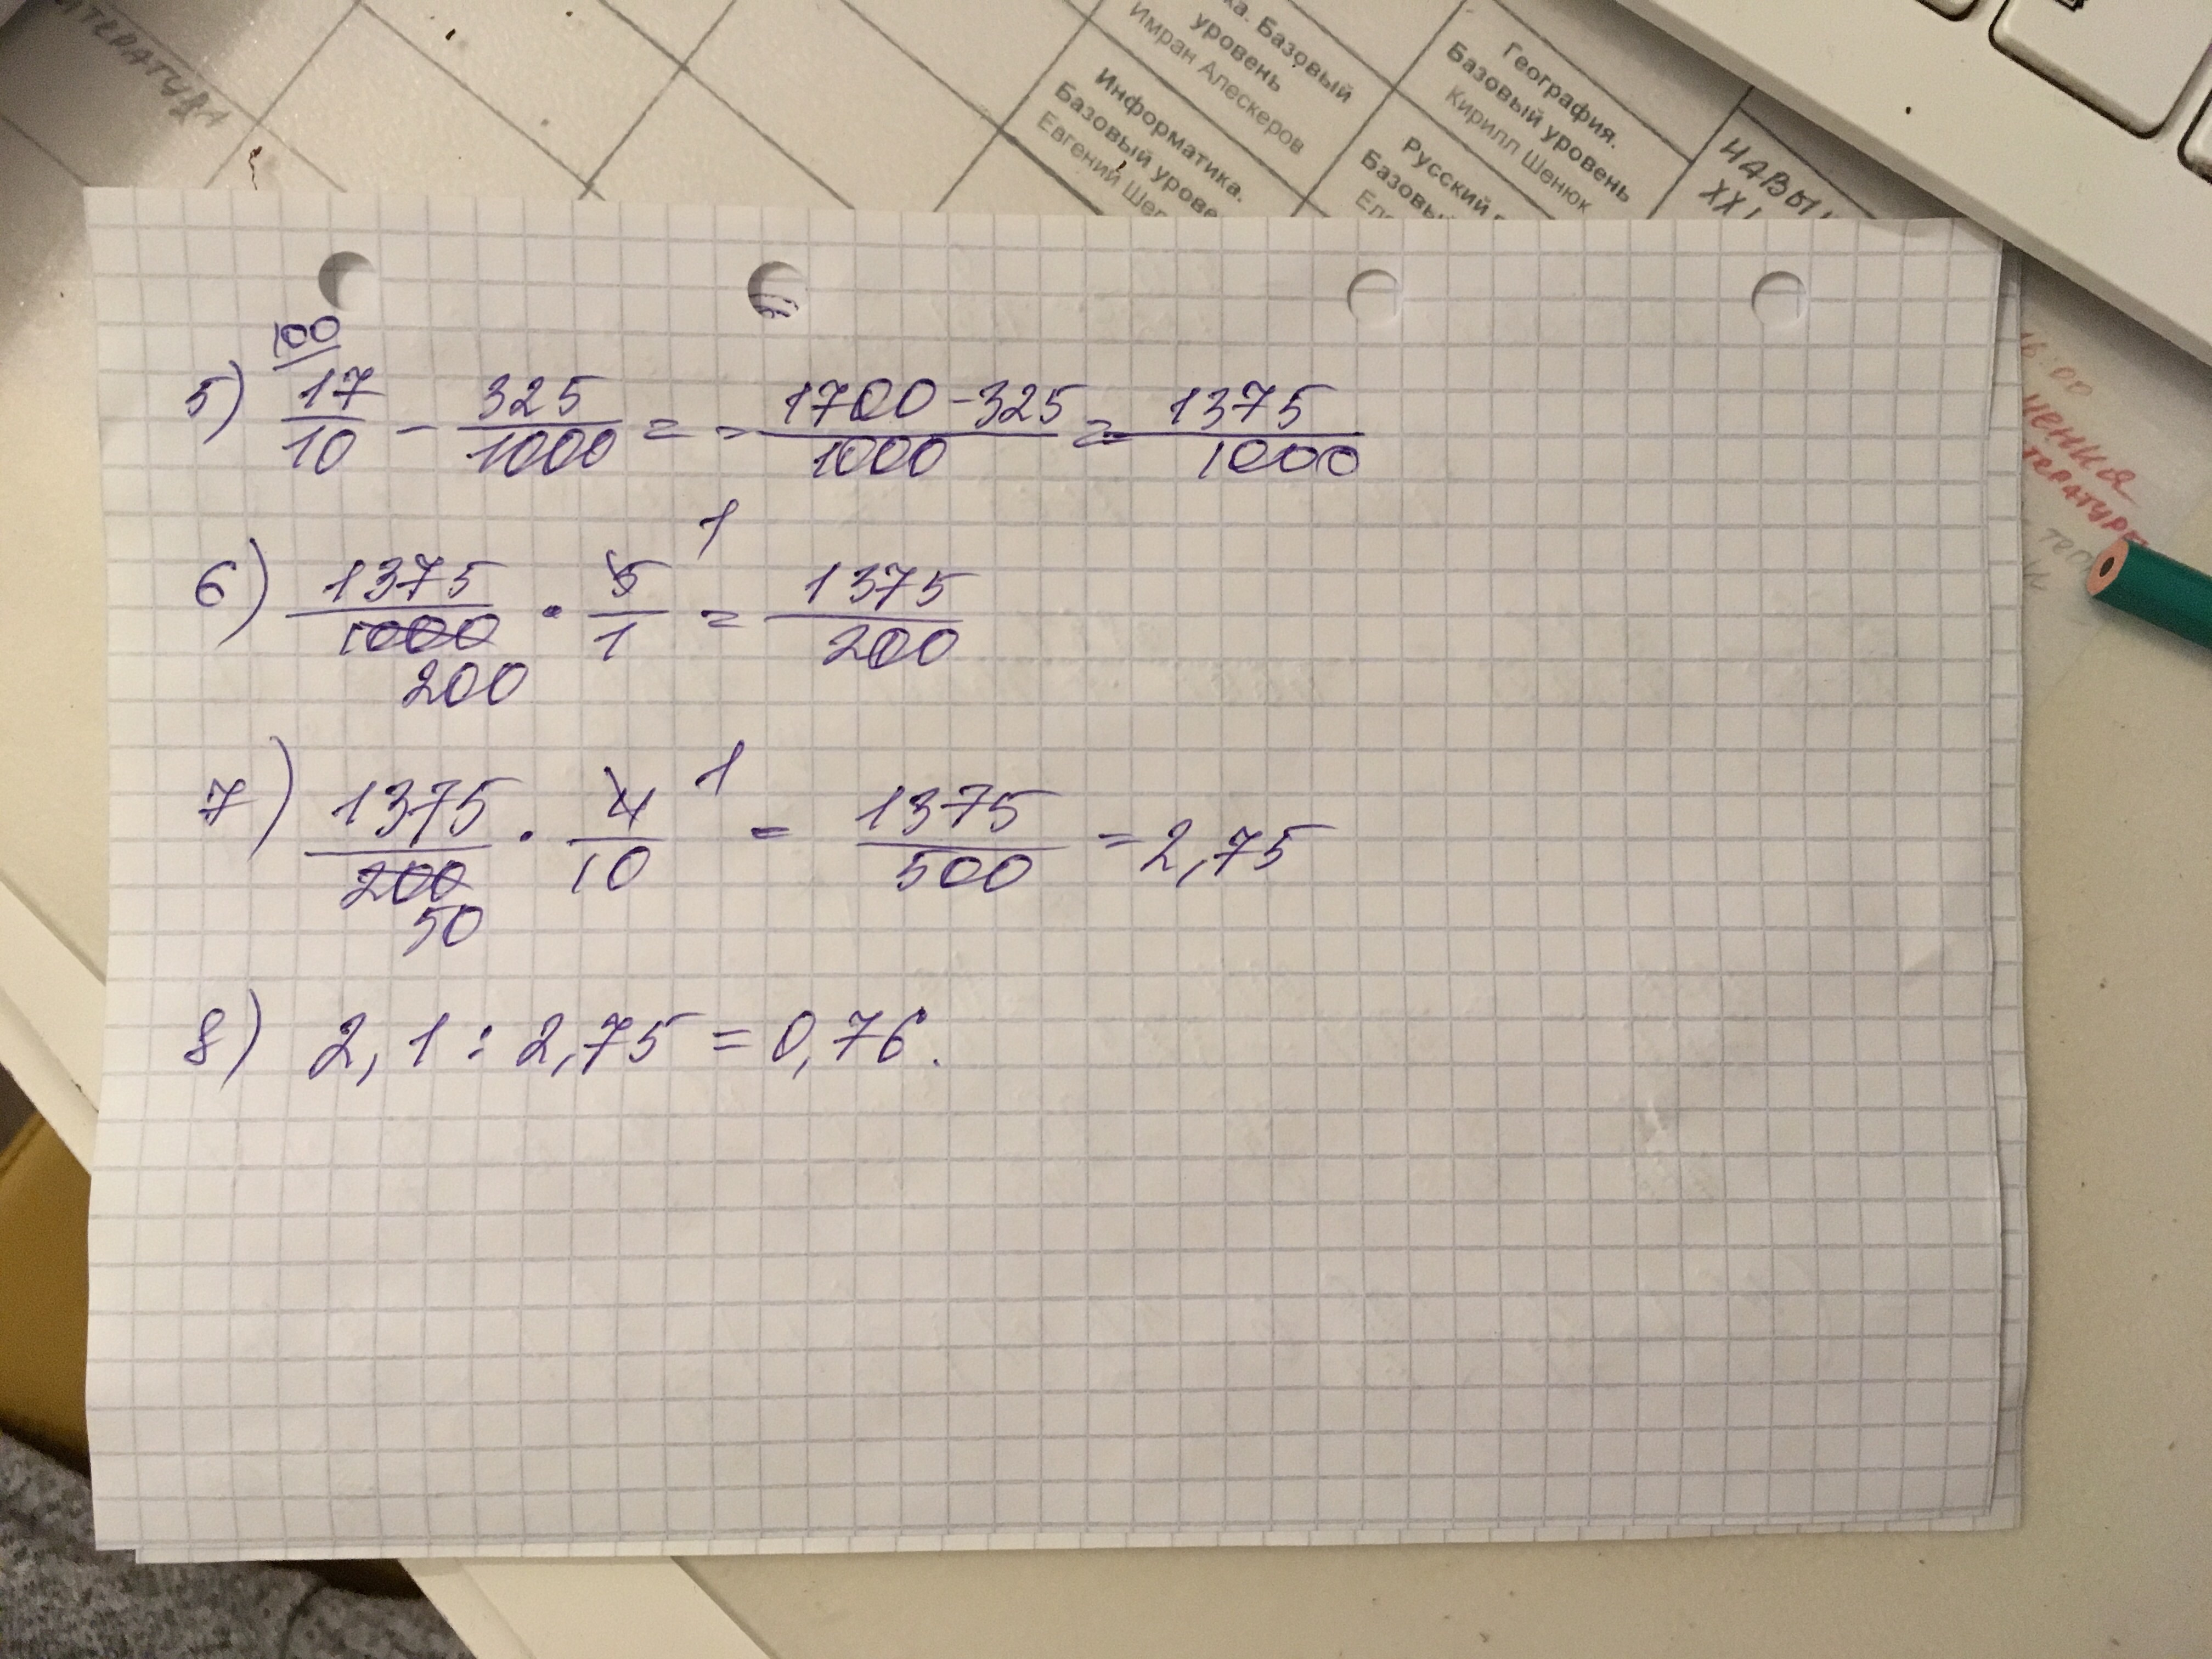 ТЕРАТУРА
ка. Базовый
уровень
Имран Алескеров
География.
Базовый уровень
Кирилл Шенюк
Информатика.
Базовый урове
Евгений Шер
Русский
Базовый
НАВЫ
XXI
100
5) 17/10 - 325/1000 = = 1700-325/1000 = 1375/1000
6) 1375/1000 · 5/1 = 1375/200
1
200
7) 1375/200 · 4/10 = 1375/500 = 2,75
1
50
8) 2,1 : 2,75 = 0,76.
16:00
ТЕРАТУРЫ